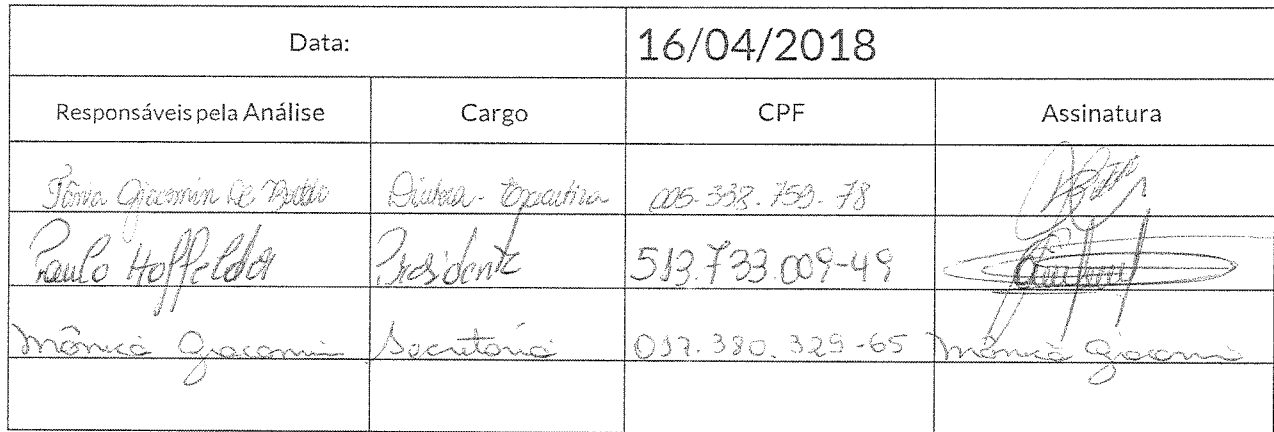 Data: 16/04/2018
Responsáveis pela Análise Cargo CPF Assinatura
Tânia Giacomin De Diretora - Executiva 005.338.759-78
Paulo Hoffelder Presidente 513.733.009-49
Mônica Giacomin Secretária 017.380.329-65 Mônica Giacomin